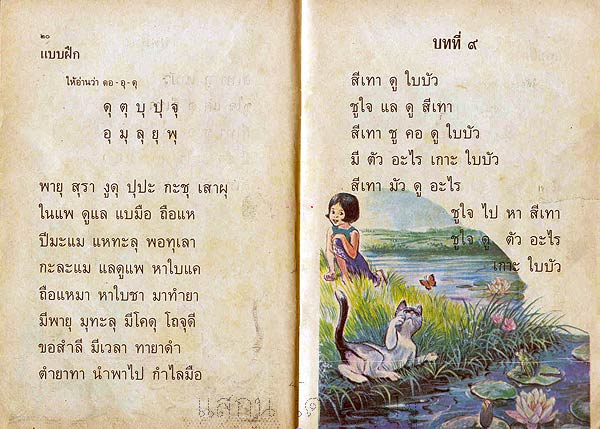 ๒๐
แบบฝึก
ให้อ่านว่า ดอ - อุ - ดุ
ดุ ตุ บุ ปุ จุ
อุ มุ ลุ ยุ พุ
พายุ สุรา งูดุ ปุปะ กะชุ เสาผุ
ในแพ ดูแล แบมือ ถือแห
ปีมะแม แหทะลุ พอทุเลา
กะละแม แลดูแพ หาใบแค
ถือแหมา หาใบชา มาทำยา
มีพายุ มุทะลุ มีโคดุ โถจุดี
ขอสำลี มีเวลา ทายาดำ
ตำยาทา นำพาไป กำไลมือ
บทที่ ๙
สีเทา ดู ใบบัว
ชูใจ แล ดู สีเทา
สีเทา ชู คอ ดู ใบบัว
มี ตัว อะไร เกาะ ใบบัว
สีเทา มัว ดู อะไร
ชูใจ ไป หา สีเทา
ชูใจ ดู ตัว อะไร
เกาะ ใบบัว